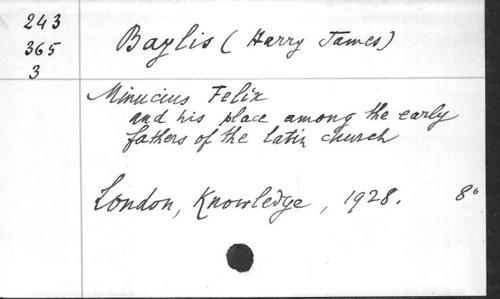 243
365
3
Baylis (Harry James)
Minucius Felix
and his place among the early
fathers of the latin church
London, Knowledge, 1928. 8°